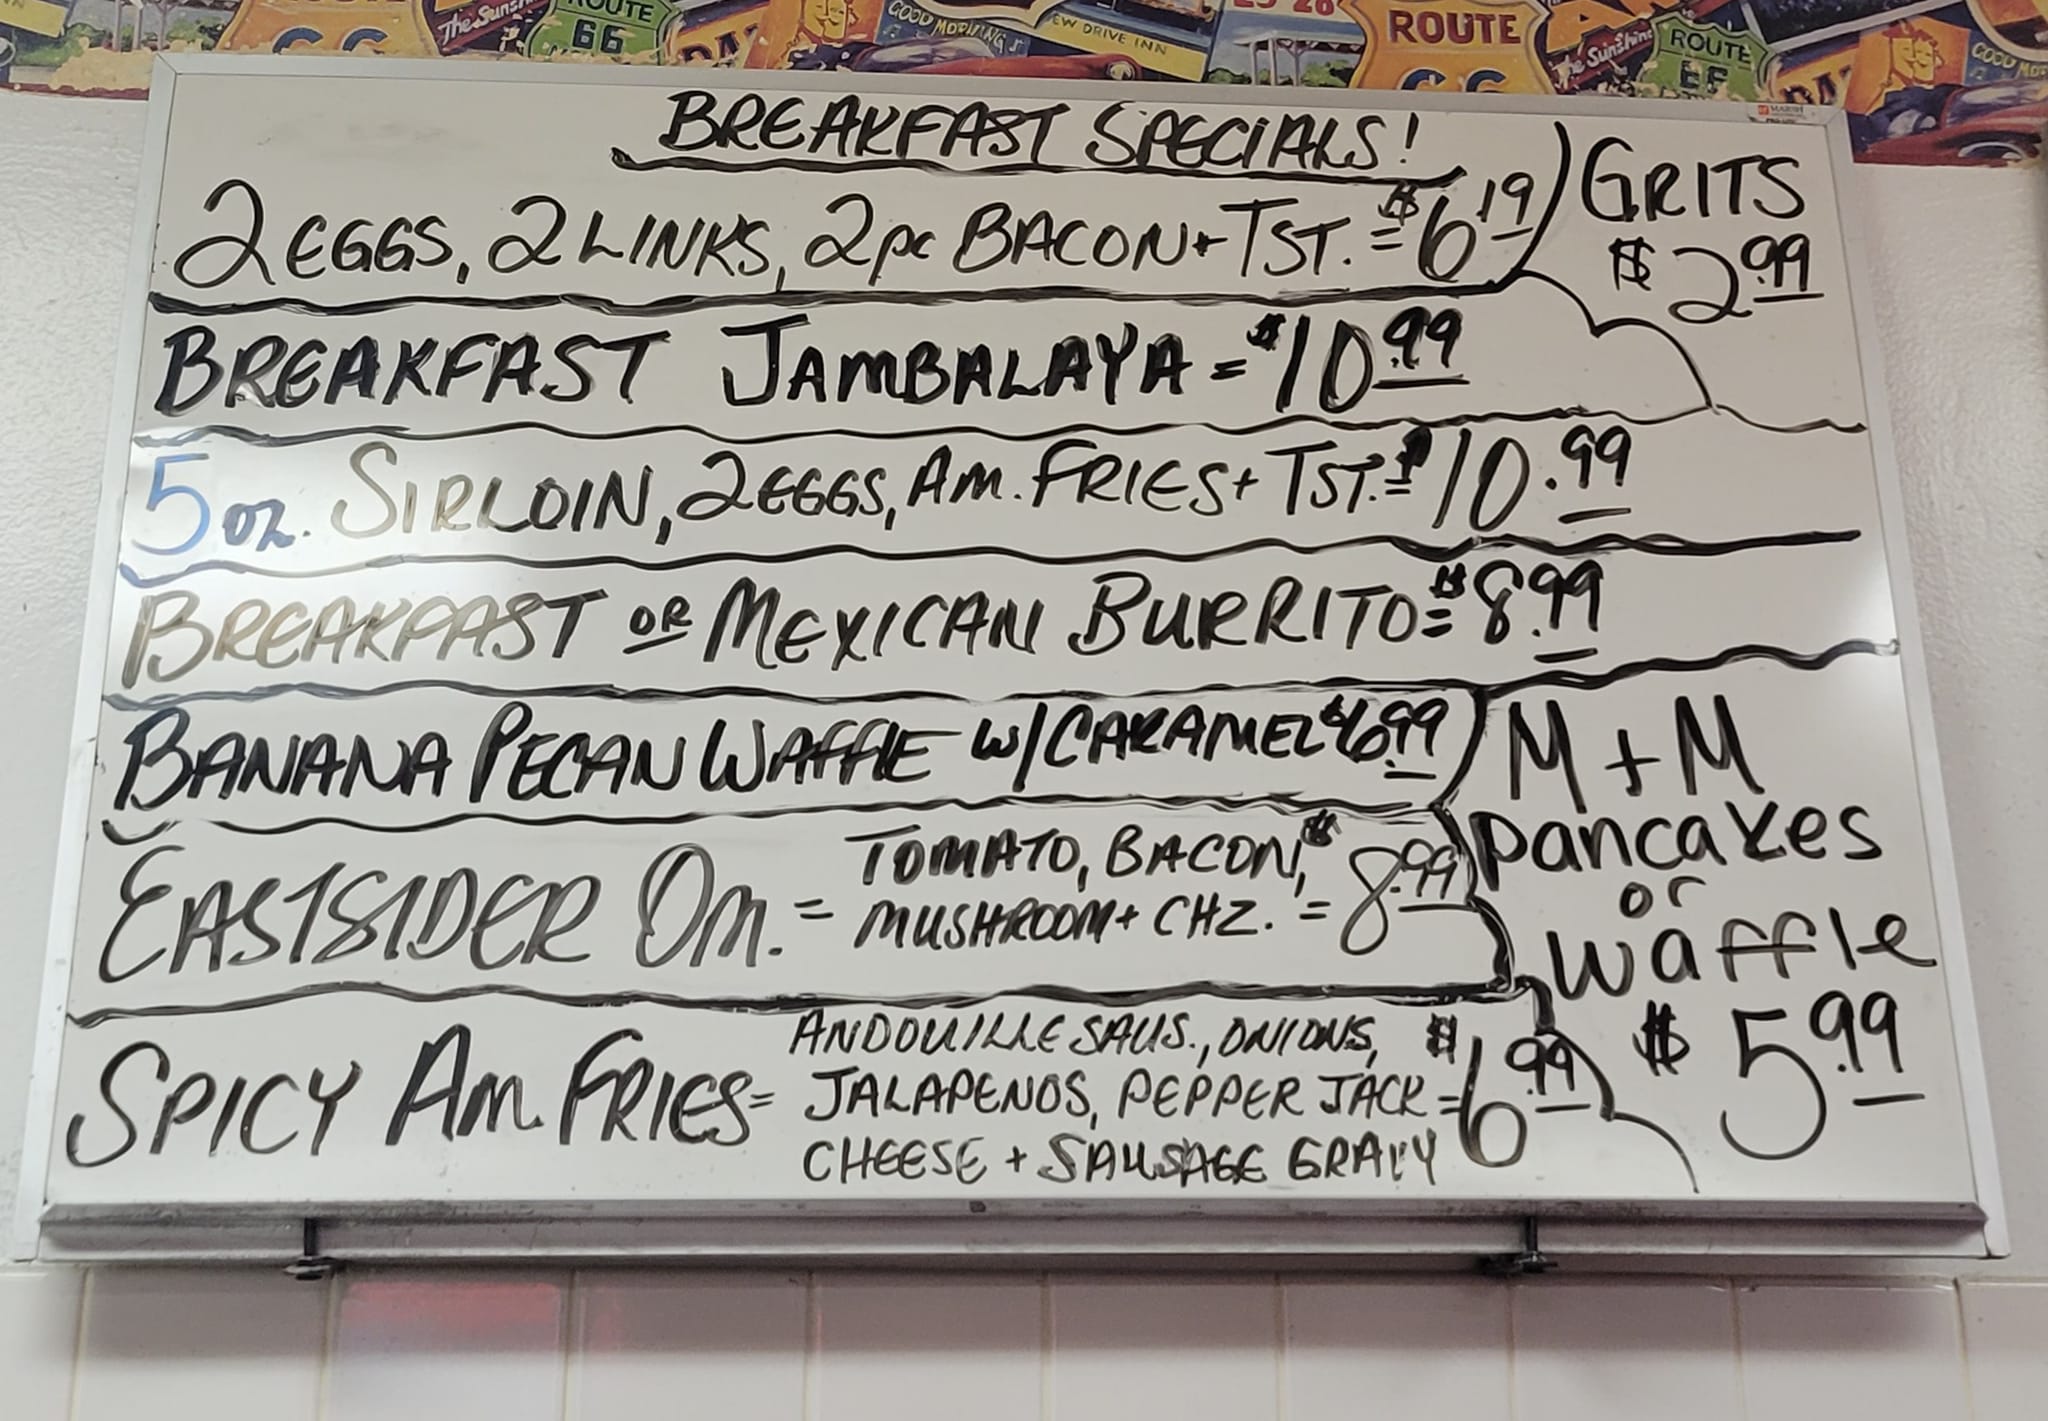 The Sunshine
ROUTE
66
GOOD MORNING
EW DRIVE INN
ROUTE
66
Sunshine
ROUTE
66
GOOD MO
BREAKFAST SPECIALS!
2 EGGS, 2 LINKS, 2pc BACON + TST. = $6.19
GRITS
$2.99
BREAKFAST JAMBALAYA = $10.99
5 oz. SIRLOIN, 2 EGGS, AM. FRIES + TST. = $10.99
BREAKFAST OR MEXICAN BURRITO = $8.99
BANANA PECAN WAFFLE W/ CARAMEL $6.99
M + M
Pancakes
or
Waffle
$5.99
EASTSIDER OM. = TOMATO, BACON,
MUSHROOM + CHZ. = $8.99
SPICY AM. FRIES = ANDOUILLE SAUS., ONIONS,
JALAPENOS, PEPPER JACK = $6.99
CHEESE + SAUSAGE GRAVY